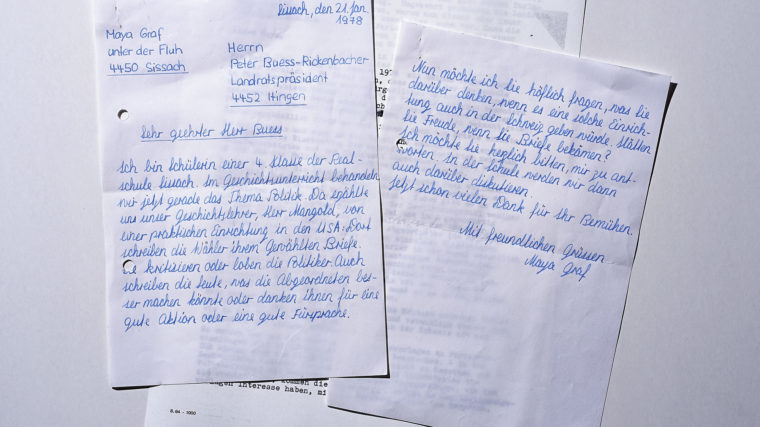 Sissach, den 21. Jan.
1978
Maya Graf
unter der Fluh
4450 Sissach
Herrn
Peter Buess-Rickenbacher
Landratspräsident
4452 Itingen
Sehr geehrter Herr Buess
Ich bin Schülerin einer 4. Klasse der Real-
schule Sissach. Im Geschichtsunterricht behandeln
wir jetzt gerade das Thema Politik. Da erzählte
uns unser Geschichtslehrer, Herr Mangold, von
einer praktischen Einrichtung in den USA: Dort
schreiben die Wähler ihrem Gewählten Briefe.
Sie kritisieren oder loben die Politiker. Auch
schreiben die Leute, was die Abgeordneten bes-
ser machen könnte oder danken ihnen für eine
gute Aktion oder eine gute Fürsprache.
Nun möchte ich Sie höflich fragen, was Sie
darüber denken, wenn es eine solche Einrich-
tung auch in der Schweiz geben würde. Hätten
Sie Freude, wenn Sie Briefe bekämen?
Ich möchte Sie herzlich bitten, mir zu ant-
worten, in der Schule werden wir dann
auch darüber diskutieren.
Jetzt schon vielen Dank für Ihr Bemühen.
Mit freundlichen Grüssen
Maya Graf
kommen die
Interesse haben, mi